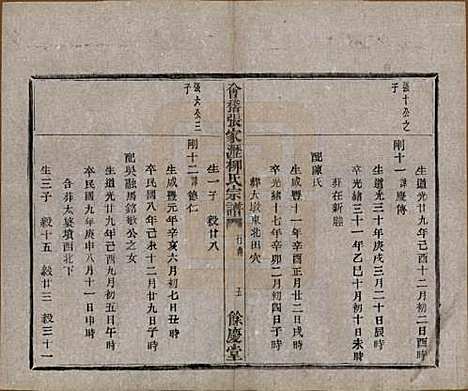 張十公之
子
剛十一 諱慶傳
生道光廿九年己酉十二月初二日酉時
生道光三十年庚戌三月二十日辰時
卒光緒三十一年乙巳十月十日未時
葬在新塍
配陳氏
生咸豐十一年辛酉正月廿二日戌時
卒光緒十七年辛卯二月初四日子時
葬大墩東北田穴
生一子 毅廿八
會稽張家瀝柳氏宗譜
五
餘慶堂
張大公三
子
剛十二 諱德仁
生咸豐元年辛亥六月初七日丑時
卒民國八年己未十二月廿九日子時
配吳融馬銘敏公之女
生道光廿九年己酉九月初五日午時
卒民國九年庚申八月十一日申時
合葬太婆墳西北下
生三子 毅十五 毅廿三 毅三十一